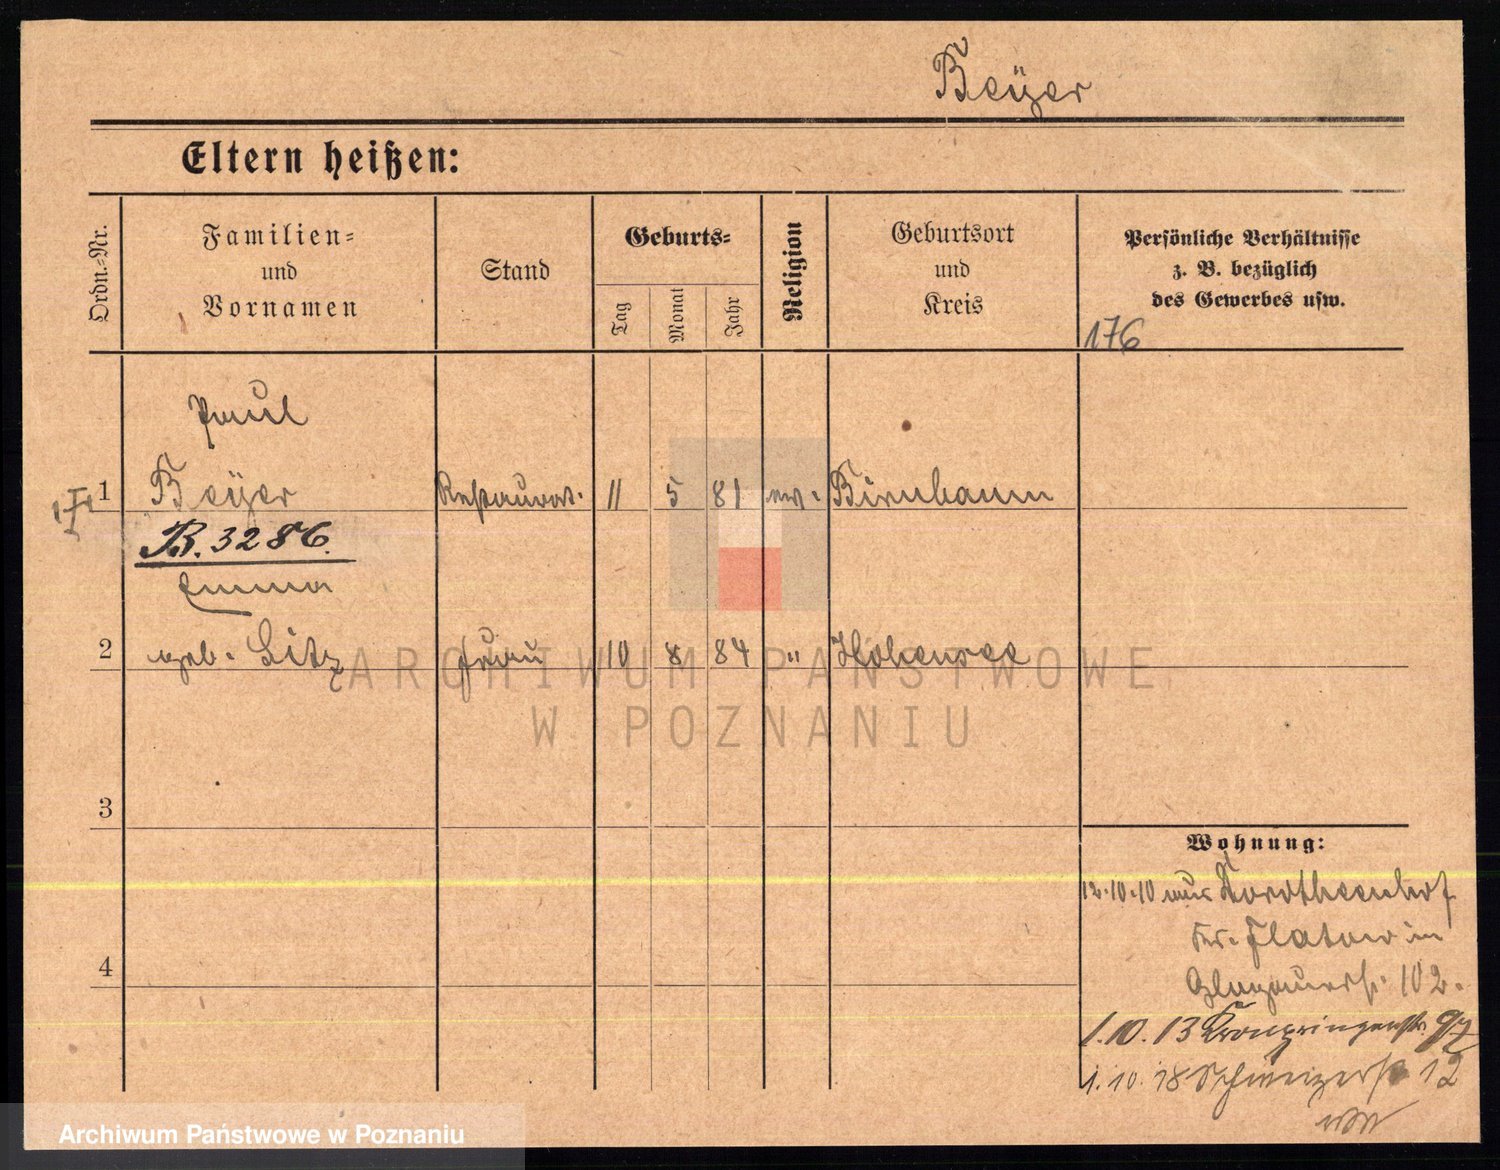 Beÿer
Eltern heißen:
Ordn.=Nr.
Familien=
und
Vornamen
Stand
Geburts=
Tag
Monat
Jahr
Religion
Geburtsort
und
Kreis
Persönliche Verhältnisse
z. B. bezüglich
des Gewerbes usw.
176
Paul
1 Beÿer Restaurat. 11 5 81 ev. Birnbaum
B. 3286.
Emma
2 geb. Litz Frau 10 8 84 " Hohensee
3
4
Wohnung:
12.10.10 aus Dorotheenhof
Kr. Flatow in
Glogauerstr. 102.
1.10.13 Kronprinzenstr. 97
1.10.18 Schweizerstr. 12
ARCHIWUM PAŃSTWOWE
W POZNANIU
Archiwum Państwowe w Poznaniu